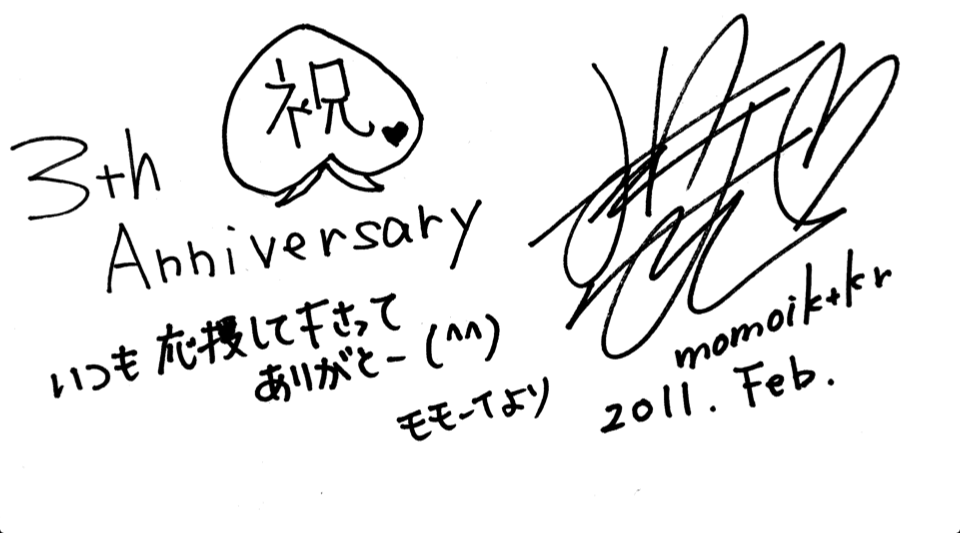 祝
3th
Anniversary
いつも応援して下さって
ありがとー(^^)
モモーイより
momoik+kr
2011. Feb.